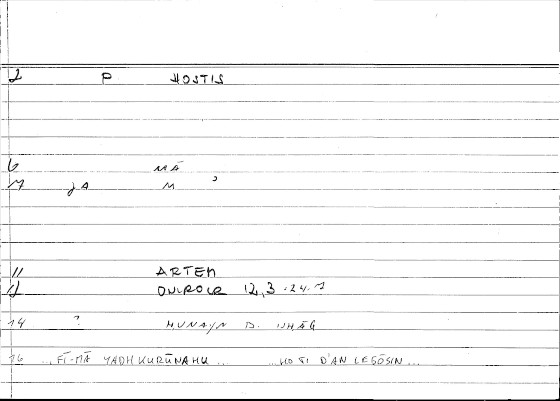 2 P HOSTIS
6 MĀ
7 JA M ʾ
11 ARTEM
12 ONIROCR 12,3 -24.7
14 ? HUNAYN B. ISḤĀQ
16 ... FĪ-MĀ YADHKURŪNAHU ... ... HO TI D'AN LEGŌSIN ...